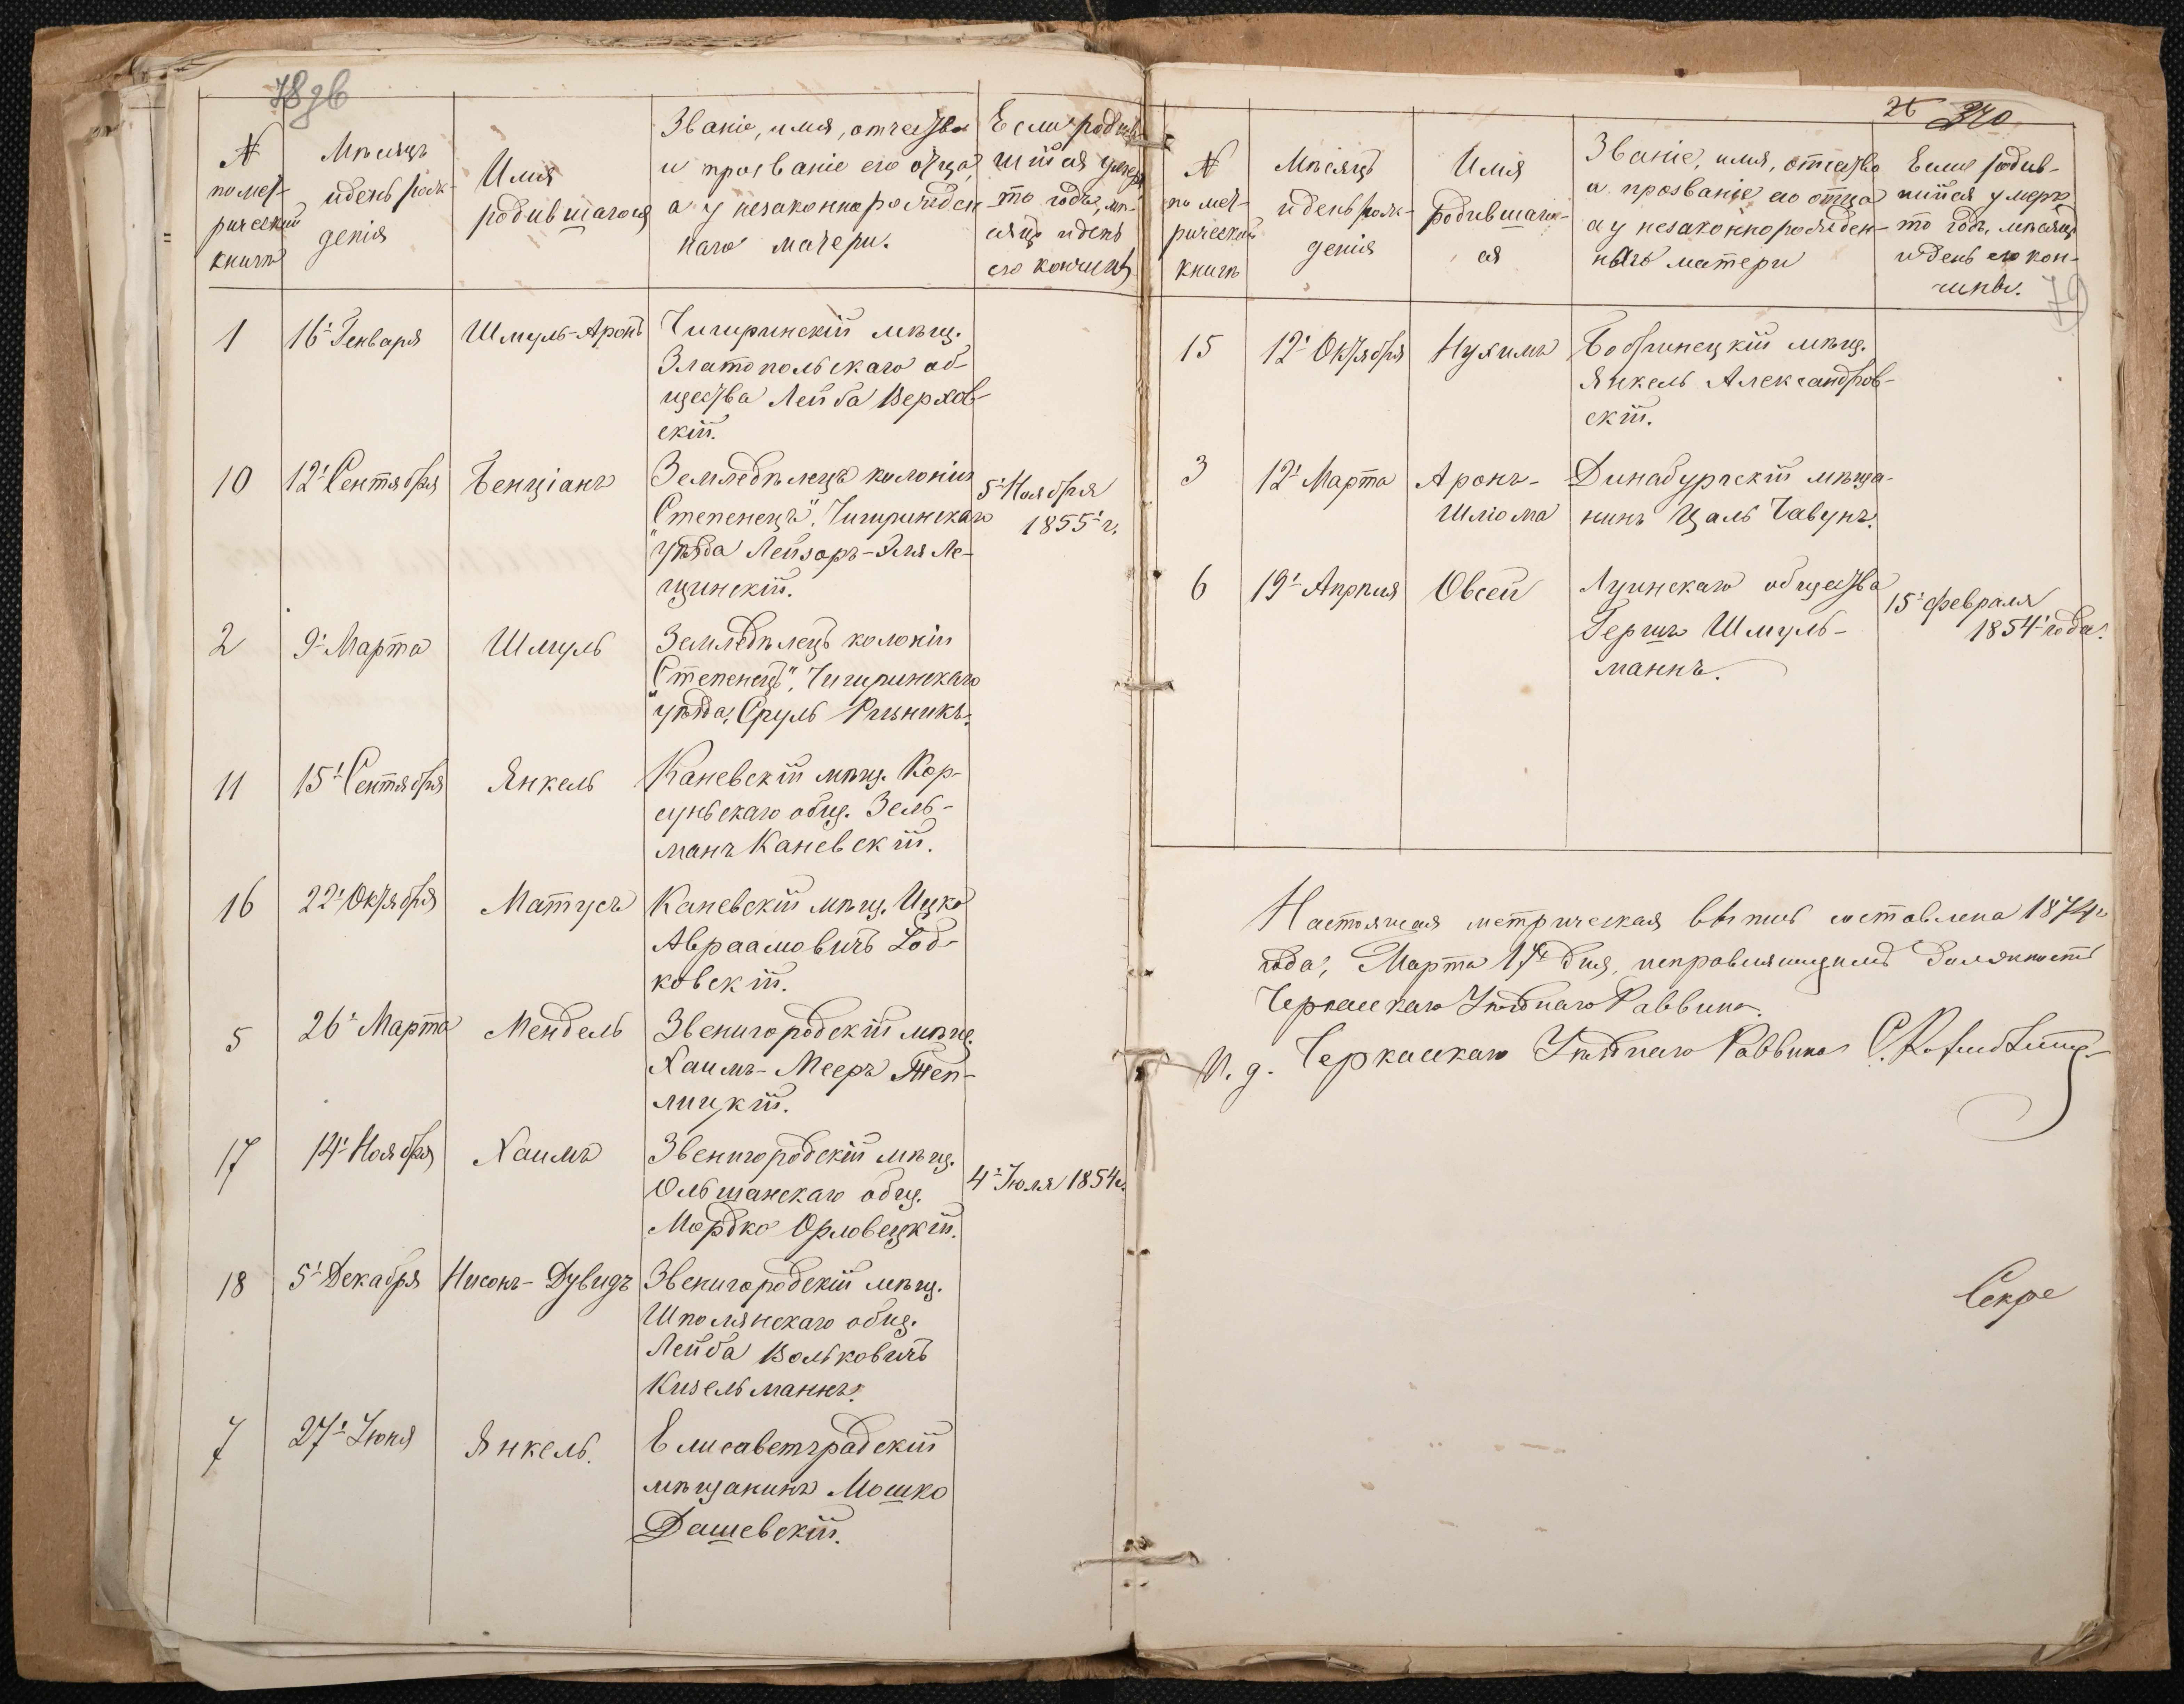 78 зв
№
по мет-
рической
книгѣ
Мѣсяцъ
и день рож-
денія
Имя
родившагося
Званіе, имя, отчество
и прозваніе его отца,
а у незаконнорожден-
наго матери.
Если родив-
шійся умеръ
то годъ, мѣ-
сяцъ и день
его кончины
1
16го Генваря
Шмуль-Аронъ
Чигиринскій мѣщ.
Златопольскаго об-
щества Лейба Верхов-
скій.
10
12го Сентября
Бенціанъ
Земледѣлецъ колоніи
„Степенецъ", Чигиринскаго
уѣзда Лейзоръ-Эля Ле-
щинскій.
5го Ноября
1855го г.
2
9го Марта
Шмуль
Земледѣлецъ колоніи
„Степенецъ", Чигиринскаго
уѣзда, Сруль Рѣзникъ.
11
15го Сентября
Янкель
Каневскій мѣщ. Кор-
суньскаго общ. Зель-
манъ Каневскій.
16
22го Октября
Матусъ
Каневскій мѣщ. Ицко
Авраамовичъ Год-
ковскій.
5
26го Марта
Мендель
Звенигородскій мѣщ.
Хаимъ-Мееръ Теп-
лицкій.
17
14го Ноября
Хаимъ
Звенигородскій мѣщ.
Ольшанскаго общ.
Мордко Орловецкій.
4го Іюля 1854 г.
18
5го Декабря
Нисонъ-Дувидъ
Звенигородскій мѣщ.
Шполянскаго общ.
Лейба Вольковичъ
Кизельманнъ.
7
27го Іюня
Янкель.
Елисаветградскій
мѣщанинъ Мошко
Дашевскій.
26 340
79
№
по мет-
рической
книгѣ
Мѣсяцъ
и день рож-
денія
Имя
родившаго-
ся
Званіе, имя, отчество
и прозваніе его отца
а у незаконнорожден-
наго матери
Если родив-
шійся умеръ
то годъ, мѣсяцъ
и день его кон-
чины.
15
12го Октября
Нухимъ
Бобринецкій мѣщ.
Янкель Александров-
скій.
3
12го Марта
Аронъ-
Шліома
Динабургскій мѣща-
нинъ Цаль Чавунъ.
6
19го Апрѣля
Овсей
Луцинскаго общества
Гершъ Шмуль-
маннъ.
15го февраля
1854го года.
Настоящая метрическая выпись составлена 1874го
года, Марта 17го дня, исправляющимъ должность
Черкасскаго Уѣзднаго Раввина.
И. д. Черкасскаго Уѣзднаго Раввина С.
Секре